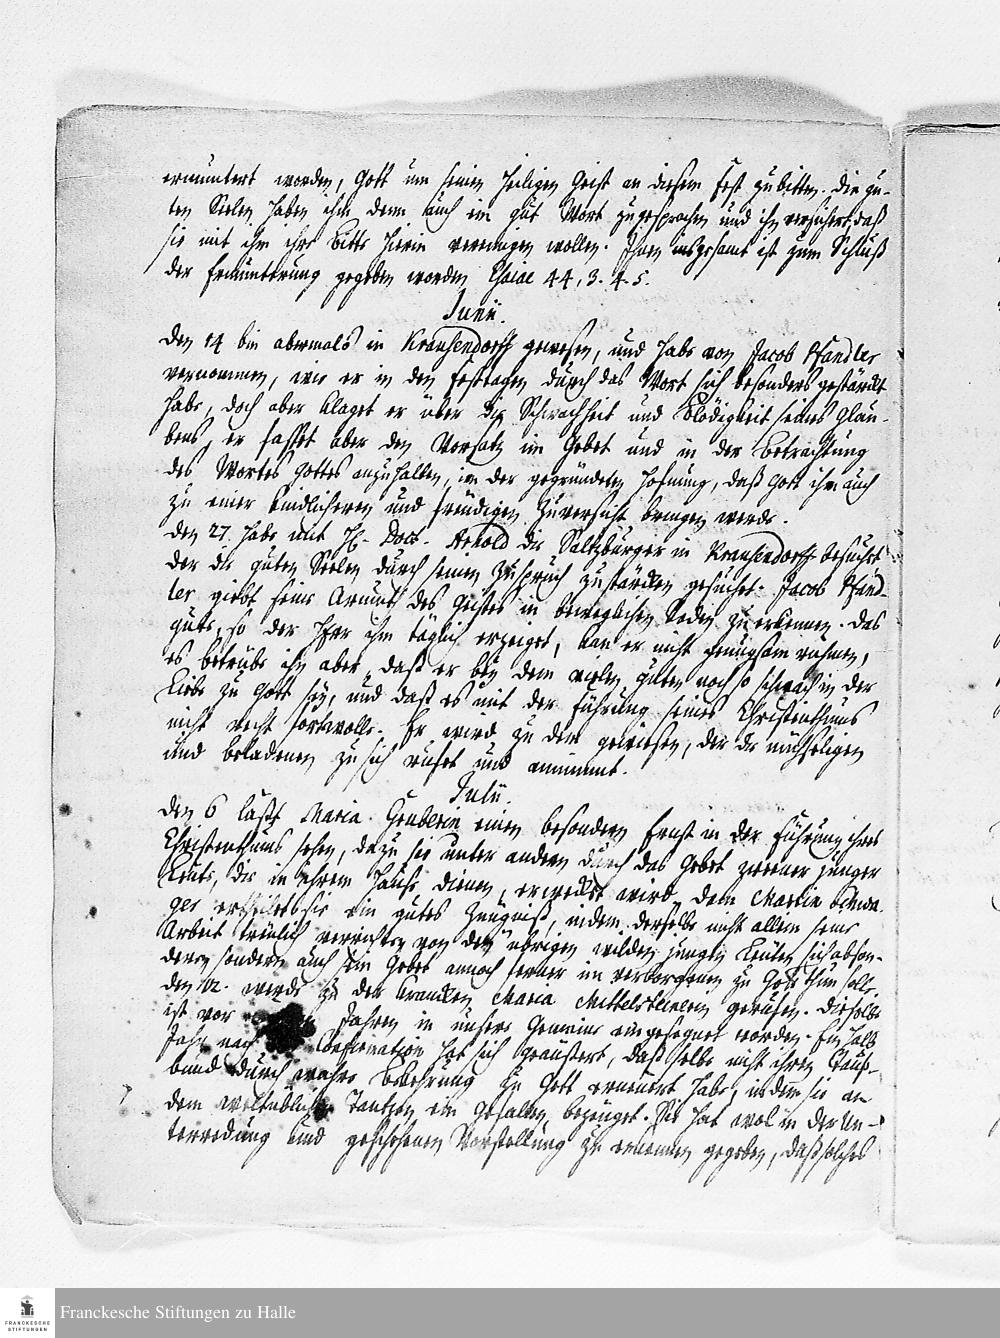 ermuntert worden, Gott um seinen heiligen Geist an diesem Fest zu bitten. Die gu-
ten Seelen haben ihm denn auch ein gut Wort zugesprochen und ihn versichert, daß
sie mit ihm ihre Bitte hierin vereinigen wollen. Ihnen insgesamt ist zum Schluß
der Ermunterung gegeben worden Esaiae 44, 3. 4. 5.
Junii.
Den 14 bin abermals in Krausendorff gewesen, und habe von Jacob Pfandler
vernommen, wie er in den Festtagen durch das Wort sich besonders gestärckt
habe, doch aber klaget er über die Schwachheit und Blödigkeit seines Glau-
bens, er fasset aber den Vorsatz im Gebet und in der Betrachtung
des Wortes Gottes anzuhalten, in der gegründeten Hofnung, daß Gott ihn auch
zu einer kindlicheren und freudigen Zuversicht bringen werde.
Den 27. habe mit H. Doct. Arnold die Saltzburger in Krausendorff besucht
der die guten Seelen durch seinen Zuspruch zu stärcken gesuchet. Jacob Pfand-
ler giebt seine Armuth des Geistes in beweglichen Reden zu erkennen. Das
gute, so der Herr ihm täglich erzeiget, kan er nicht genugsam rühmen,
es betrübe ihn aber, daß er bey dem vielen guten noch so schwach in der
Liebe zu Gott sey, und daß es mit der Führung seines Christenthums
nicht recht fort wolle. Er wird zu dem gewiesen, der die mühseligen
und beladenen zu sich rufet und annimmt.
Julii.
Den 6 lässt Maria Gruberin einen besondern Ernst in der Führung ihres
Christenthums sehen, dazu sie unter andern durch das Gebet zweener junger
Leute, die in ihrem Hause dienen, erwecket wird. Dem Martin
ertheilet sie ein gutes Zeugniß, indem derselbe nicht allein seine
Arbeit treulich verrichte, von den übrigen wilden jungen Leuten sich abson-
dere, sondern auch sein Gebet annoch ferner im verborgenen zu Gott thun solle.
Den 12. werde zu der krancken Maria Mittelsteinerin gerufen. Dieselbe
ist vor Jahren in unsere Gemeine eingesegnet worden. Ein halb
Jahr nach Confirmation hat sich geäußert, daß selbe nicht ihren Tauf-
bund durch wahre Bekehrung zu Gott erneuert habe, indem sie an
dem weltüblichen Tantzen ein gefallen bezeuget. Sie hat wol in der Un-
terredung und geschehenen Vorstellung zu erkennen gegeben, daß solches
Franckesche Stiftungen zu Halle
FRANCKESCHE
STIFTUNGEN